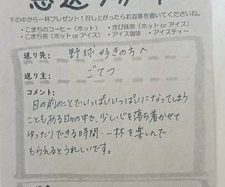 下の中から一杯プレゼント！召し上がったらお返事を書いてくださいね。
・こまちのコーヒー（ホット or アイス） ・さっぱり
・こまち茶（ホット or アイス） ・アイス
・アイスティー
送り先： 野球好きの方へ
送り主： ごてつ
コメント：
目の前のことでいっぱいいっぱいになってしまう
こともある日々の中で、少し心を落ち着かせて
ゆったりできる時間、一杯を楽しんで
もらえるとうれしいです。